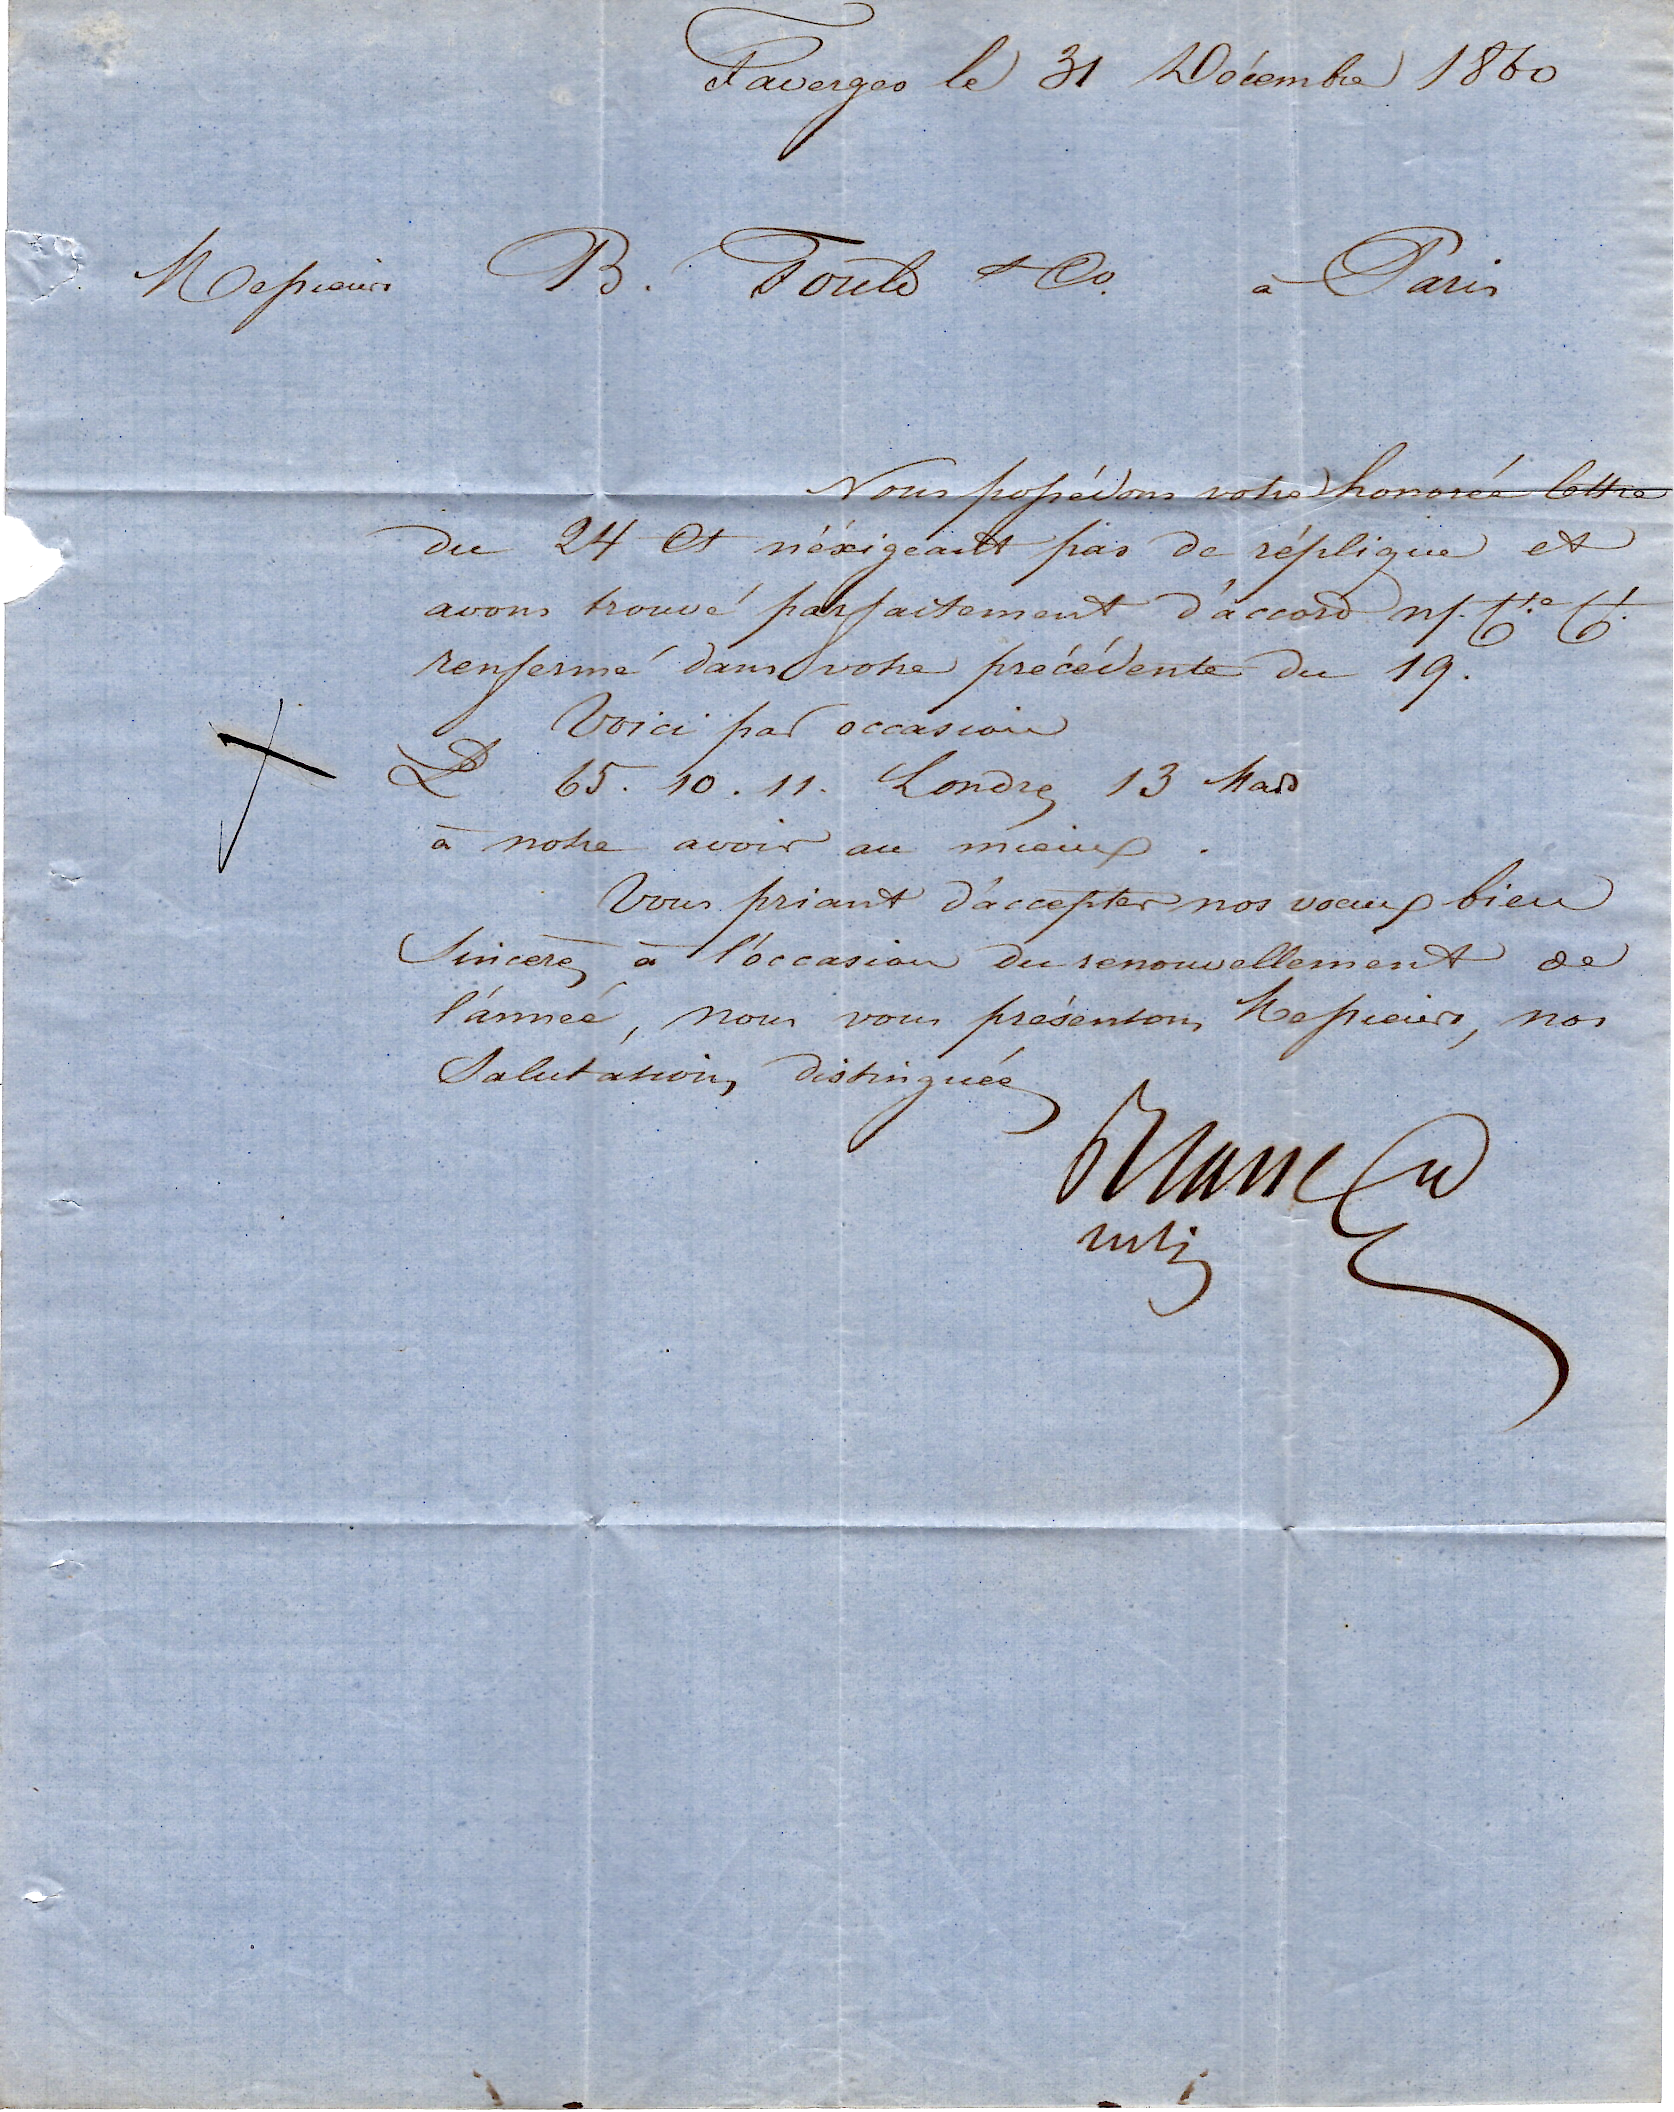 Faverges le 31 Décembre 1860
Messieurs B. Fould & Co. à Paris
Nous possédons votre honorée lettre
du 24 Ct n'éxigeant pas de réplique et
avons trouvé parfaitement d'accord n/. Cte Ct.
renfermé dans votre précédente du 19.
Voici par occasion
£ 65. 10. 11. Londres 13 Mars
à notre avoir au mieux.
Vous priant d'accepter nos voeux bien
Sincères à l'occasion du renouvellement de
l'année, nous vous présentons Messieurs, nos
Salutations distinguées